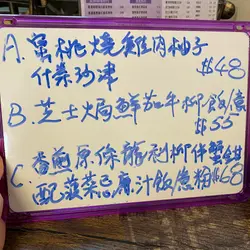 A. 蜜桃燒雞肉柚子
什菜沙津
$48
B. 芝士焗鮮茄牛柳飯/意
$55
C. 香煎原條龍利柳伴蟹
配菠菜忌廉汁飯/意粉 $68